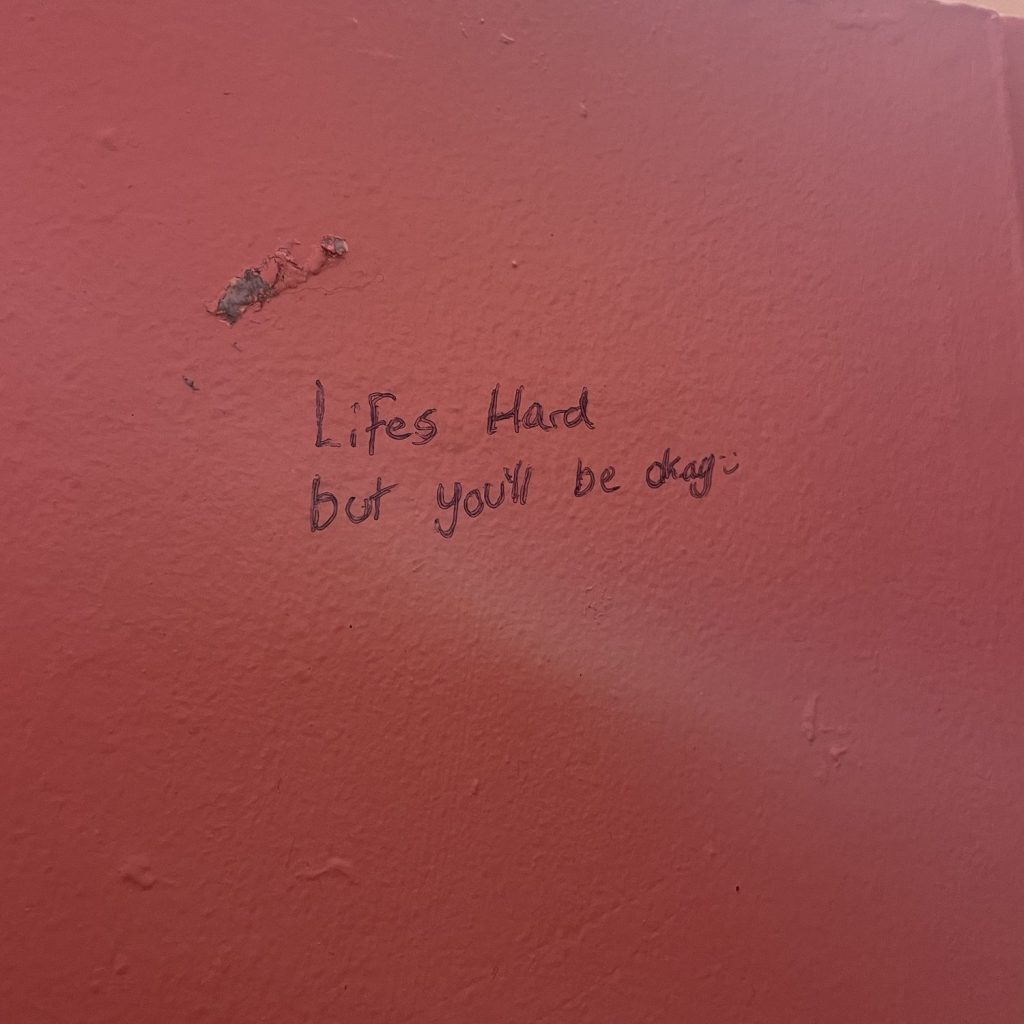 Lifes Hard
but you'll be okay :)